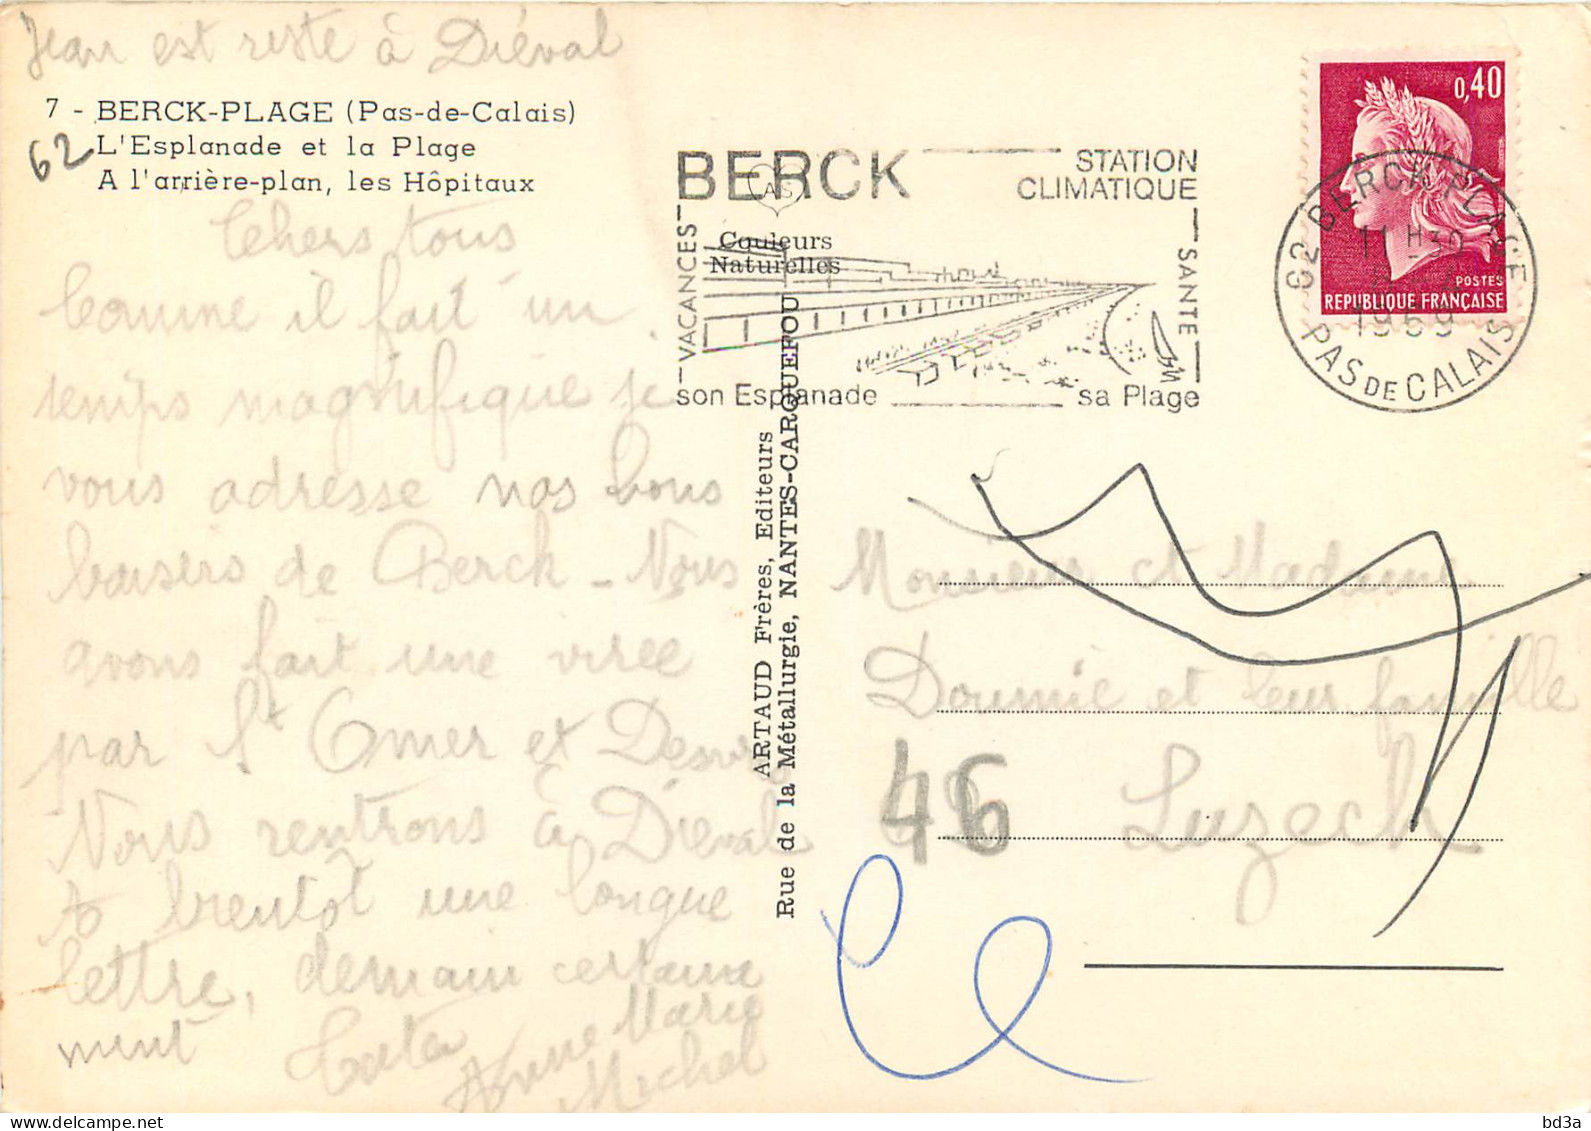 Jean est resté à Diéval
7 - BERCK-PLAGE (Pas-de-Calais)
62
L'Esplanade et la Plage
A l'arrière-plan, les Hôpitaux
Chers tous
Comme il fait un
temps magnifique je
vous adresse nos bons
baisers de Berck - Nous
avons fait une virée
par St Omer et
Nous rentrons à Diéval
A bientôt une longue
lettre, demain certaine
ment
Anne Marie
Michel
BERCK
STATION
CLIMATIQUE
VACANCES
SANTE
son Esplanade
sa Plage
AS
Couleurs
Naturelles
ARTAUD Frères, Editeurs
Rue de la Métallurgie, NANTES-CARQUEFOU
0,40
POSTES
REPUBLIQUE FRANÇAISE
62 BERCK PLAGE
11 H30
1969
PAS DE CALAIS
Monsieur et Madame
Doumic et leur famille
46 Luzech
bd3a